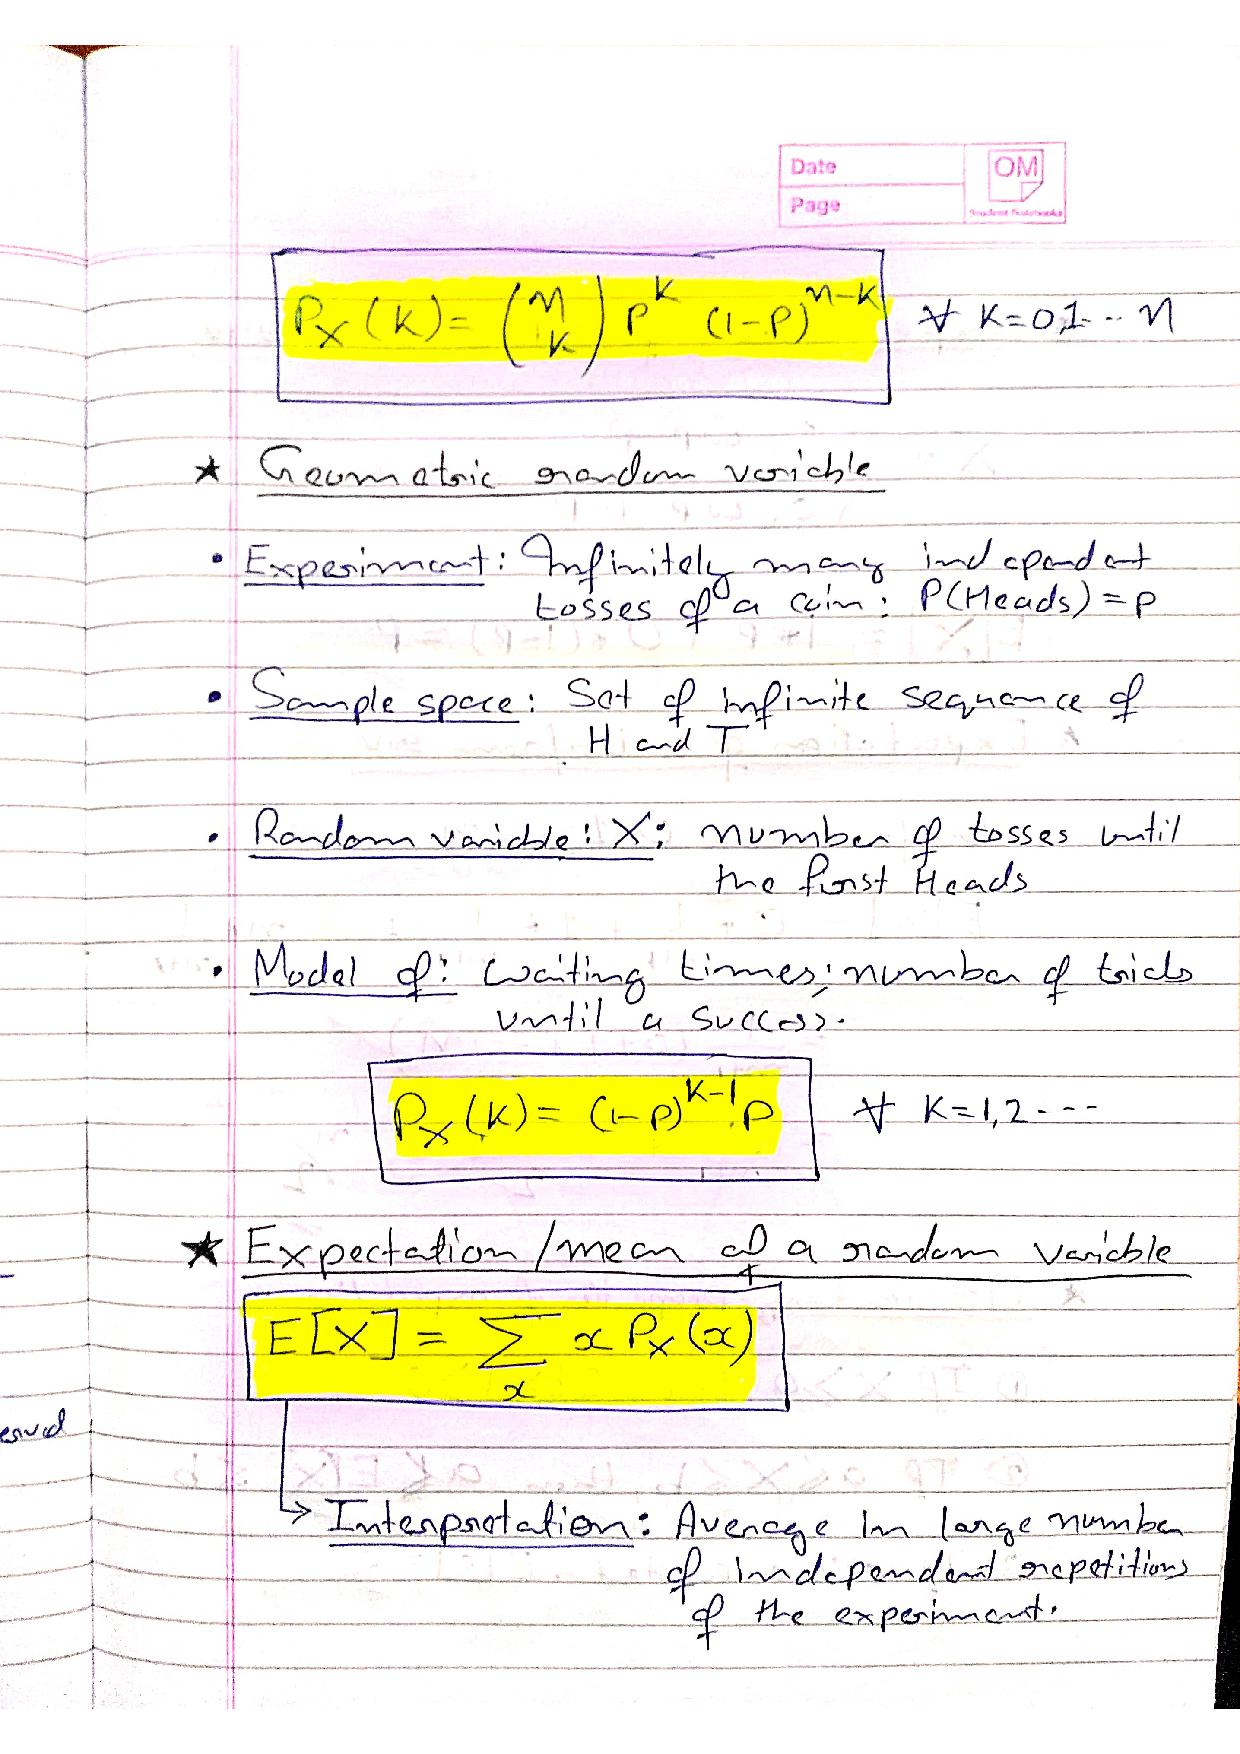 Date
OM
Page
Student Notebooks
P_X(k) = (n k) p^k (1-p)^{n-k} ∀ k=0,1... n
★ Geometric random variable
• Experiment: Infinitely many independent
tosses of a coin: P(Heads) = p
• Sample space: Set of infinite sequence of
H and T
• Random variable: X: number of tosses until
the first Heads
• Model of: waiting times; number of trials
until a success.
P_X(k) = (1-p)^{k-1} p ∀ k=1,2 ---
★ Expectation/mean of a random variable
E[X] = Σ_x x P_X(x)
Interpretation: Average in large number
of independent repetitions
of the experiment.